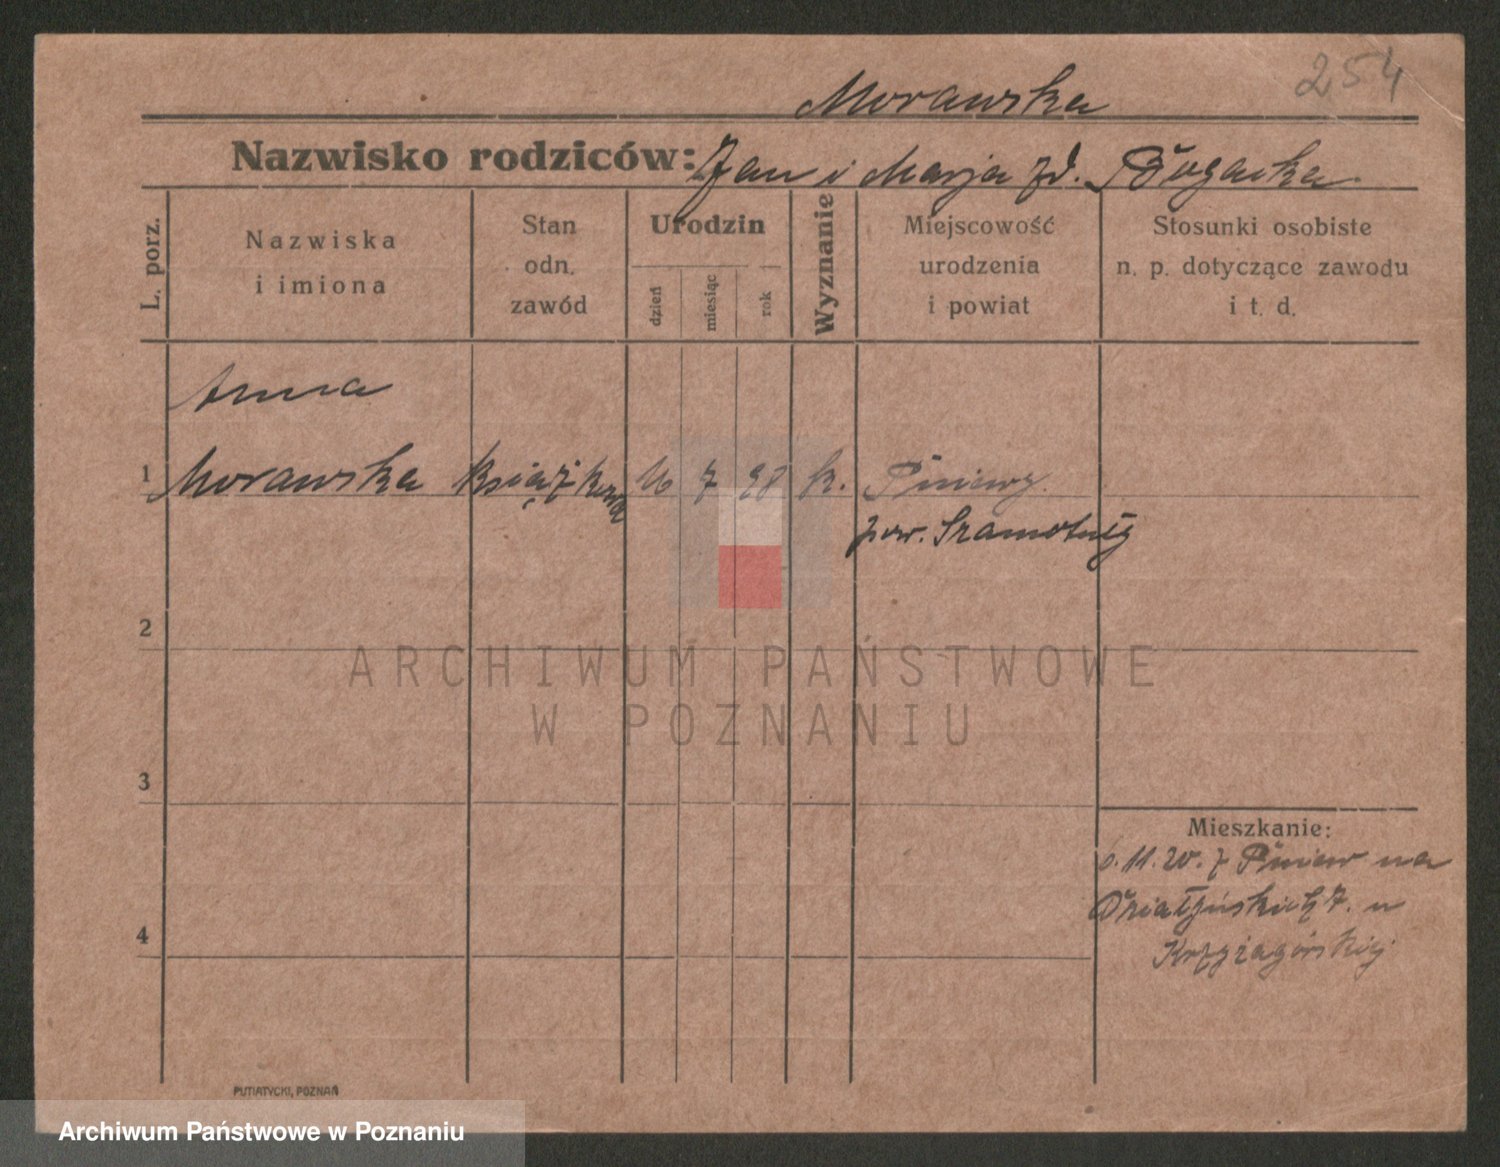 254
Morawska
Nazwisko rodziców: Jan i Marja zd. Bogacka
L. porz.
Nazwiska
i imiona
Stan
odn.
zawód
Urodzin
dzień
miesiąc
rok
Wyznanie
Miejscowość
urodzenia
i powiat
Stosunki osobiste
n. p. dotyczące zawodu
i t. d.
Anna
1 Morawska książkowa 16 7 98 k. Pniewy
pow. Szamotuły
2
3
4
Mieszkanie:
11. 20. z Pniew na
Działyńskich 7. u
Krzyżagórskiej
PUTIATYCKI, POZNAŃ
ARCHIWUM PAŃSTWOWE
W POZNANIU
Archiwum Państwowe w Poznaniu